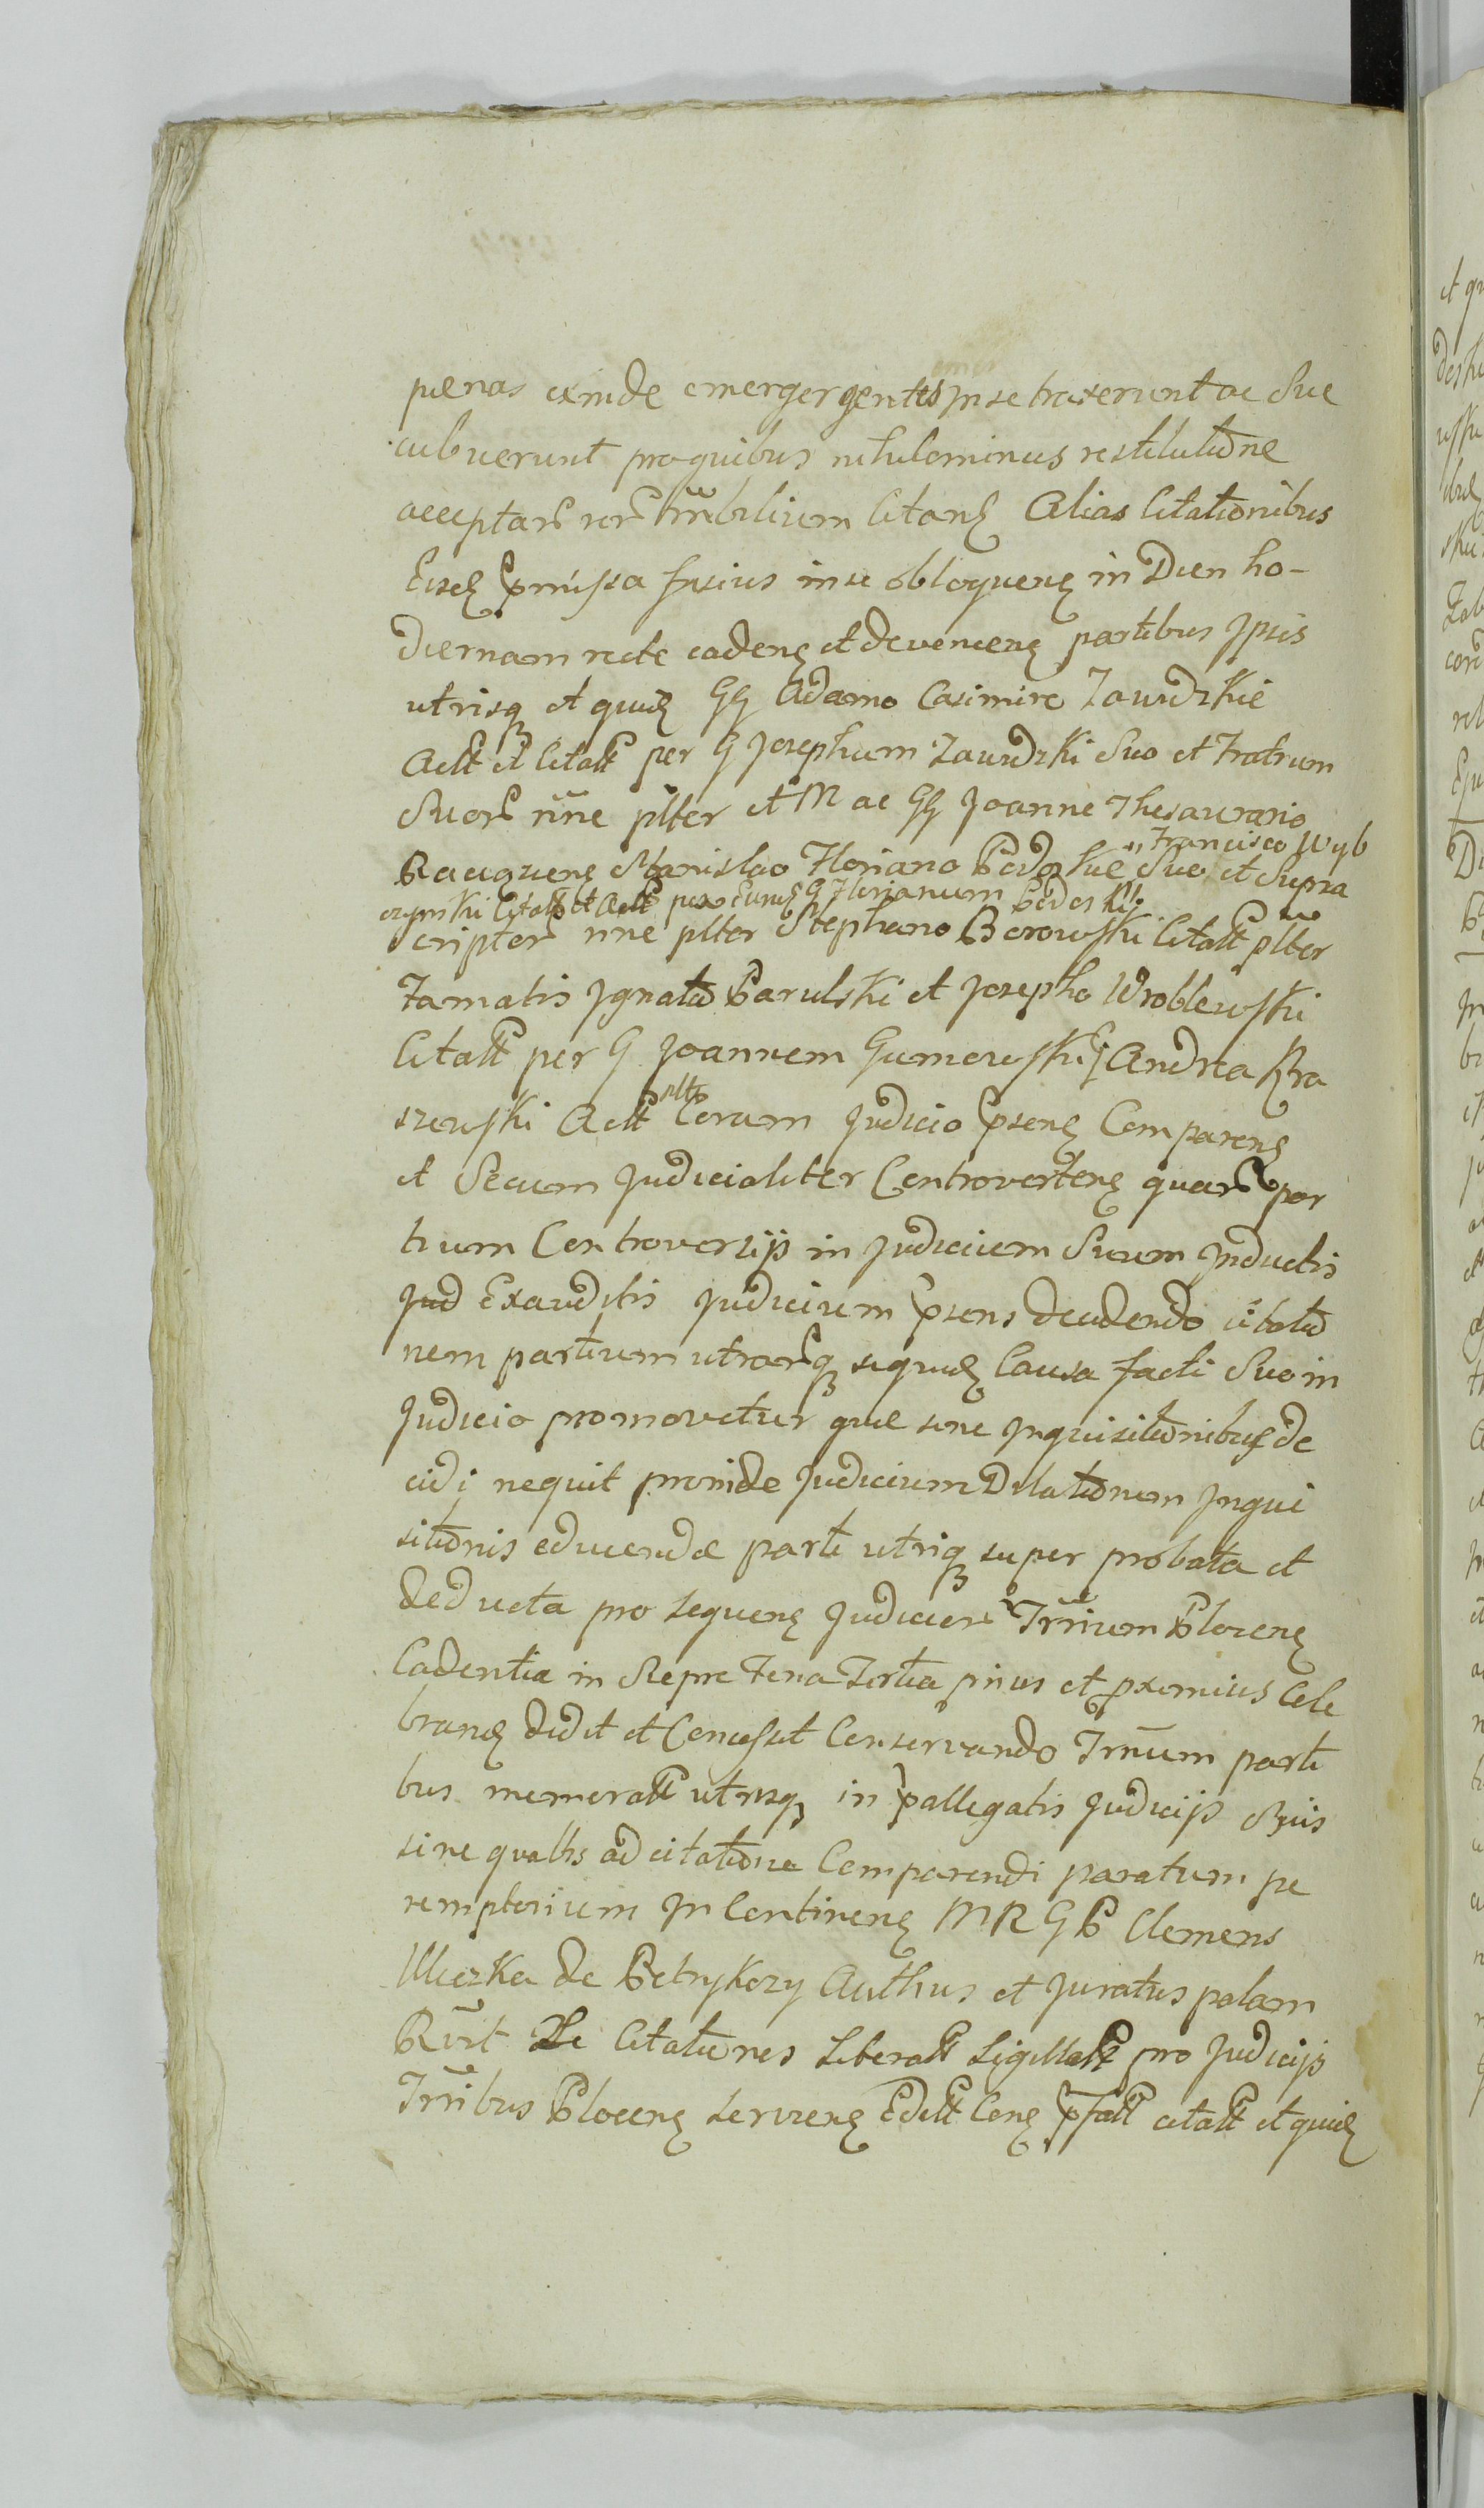 pœnas exinde emergergentes in se traxerunt ac Suc
cubuerunt pro quibus nihilominus restitutione
acceptar rer mobilium Citans Alias Citationibus
Eisd pmissa fusius in se obloquens in Diem ho-
diernam recte cadens et deveniens partibus Ipsis
utrisq et quid GG Adamo Casimiro Zawidzkie
Actt et Citatt per G Josephum Zawidzki Suo et Fratrum
Suor nne plter et M ac GG Joanne Thesaurario
Francisco Wyb
Raciązens Stanislao Floriano Suo et Supra
czynski Citatt et Actt per Eund G Florianum
Scriptor nne plter Stephano Borowski Citatt plter
Famatis Ignatio Parulski et Josepho Wroblewski
Citatt per G Joannem Gumowski Andrea Kra
szewski Actt Coram Judicio psens Comparens
et Secum Judicialiter Controvertens quar par
tium Controversijs in Judicium Suum Inductis
Jud Exauditis Judicium psens decidendo citatio
nem partium utrarq siquid Causa facti Suo in
Judicio promovetur quæ sine Inquisitionibus de
cidi nequit proinde Judicium Dilationem Inqui
sitionis educendæ parti utriq super probata et
deducta pro sequens Judicior Trrium Plocens
Cadentia in Sepne Fena Tertia prius et pximius Cele
brand didit et Concessit Conservando Trnum parti
bus memoratt utrisq in pallegatis Judicijs Suis
sine quallbs adcitatione Comparendi paratum pe
remptorium In Continens MR GP Clemens
Uliczka de Petrykozy Authus et Juratus palam
Rvit Se Citationes Liberatt Sigillatt pro Judicijs
Trribus Plocens Serviens Editt Cons pfatt citatt et quid